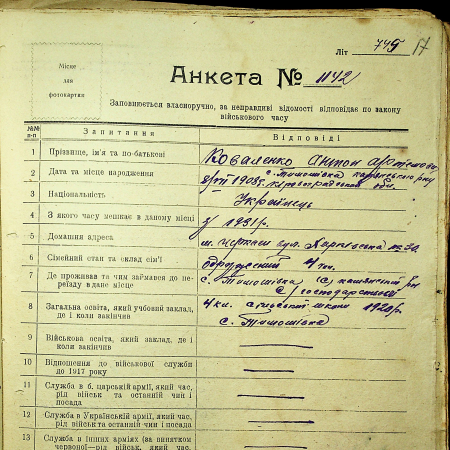 Літ 745 17
Місце
для
фотокартки
Анкета № 1142
Заповнюється власноручно, за неправдиві відомості відповідає по закону
військового часу
№№
п-п
Запитання
Відповіді
1 Прізвище, ім'я та по-батькові
Коваленко Антон
2 Дата та місце народження
1908 р.
3 Національність
Українець
4 З якого часу мешкає в даному місці
з 1931 р.
5 Домашня адреса
м. Черкаси вул.
6 Сімейний стан та склад сім'ї
одружений 4
7 Де проживав та чим займався до пе-
реїзду в дане місце
с. Тимошівка
8 Загальна освіта, який учбовий заклад,
де і коли закінчив
4 кл. сільської школи 1920 р.
с. Тимошівка
9 Військова освіта, який заклад, де і
коли закінчив
10 Відношення до військової служби
до 1917 року
11 Служба в б. царській армії, який час,
рід військ та останній чин і
посада
12 Служба в Українській армії, який час,
рід військ та останній чин і посада
13 Служба в інших арміях (за винятком
червоної—рід військ, який час,